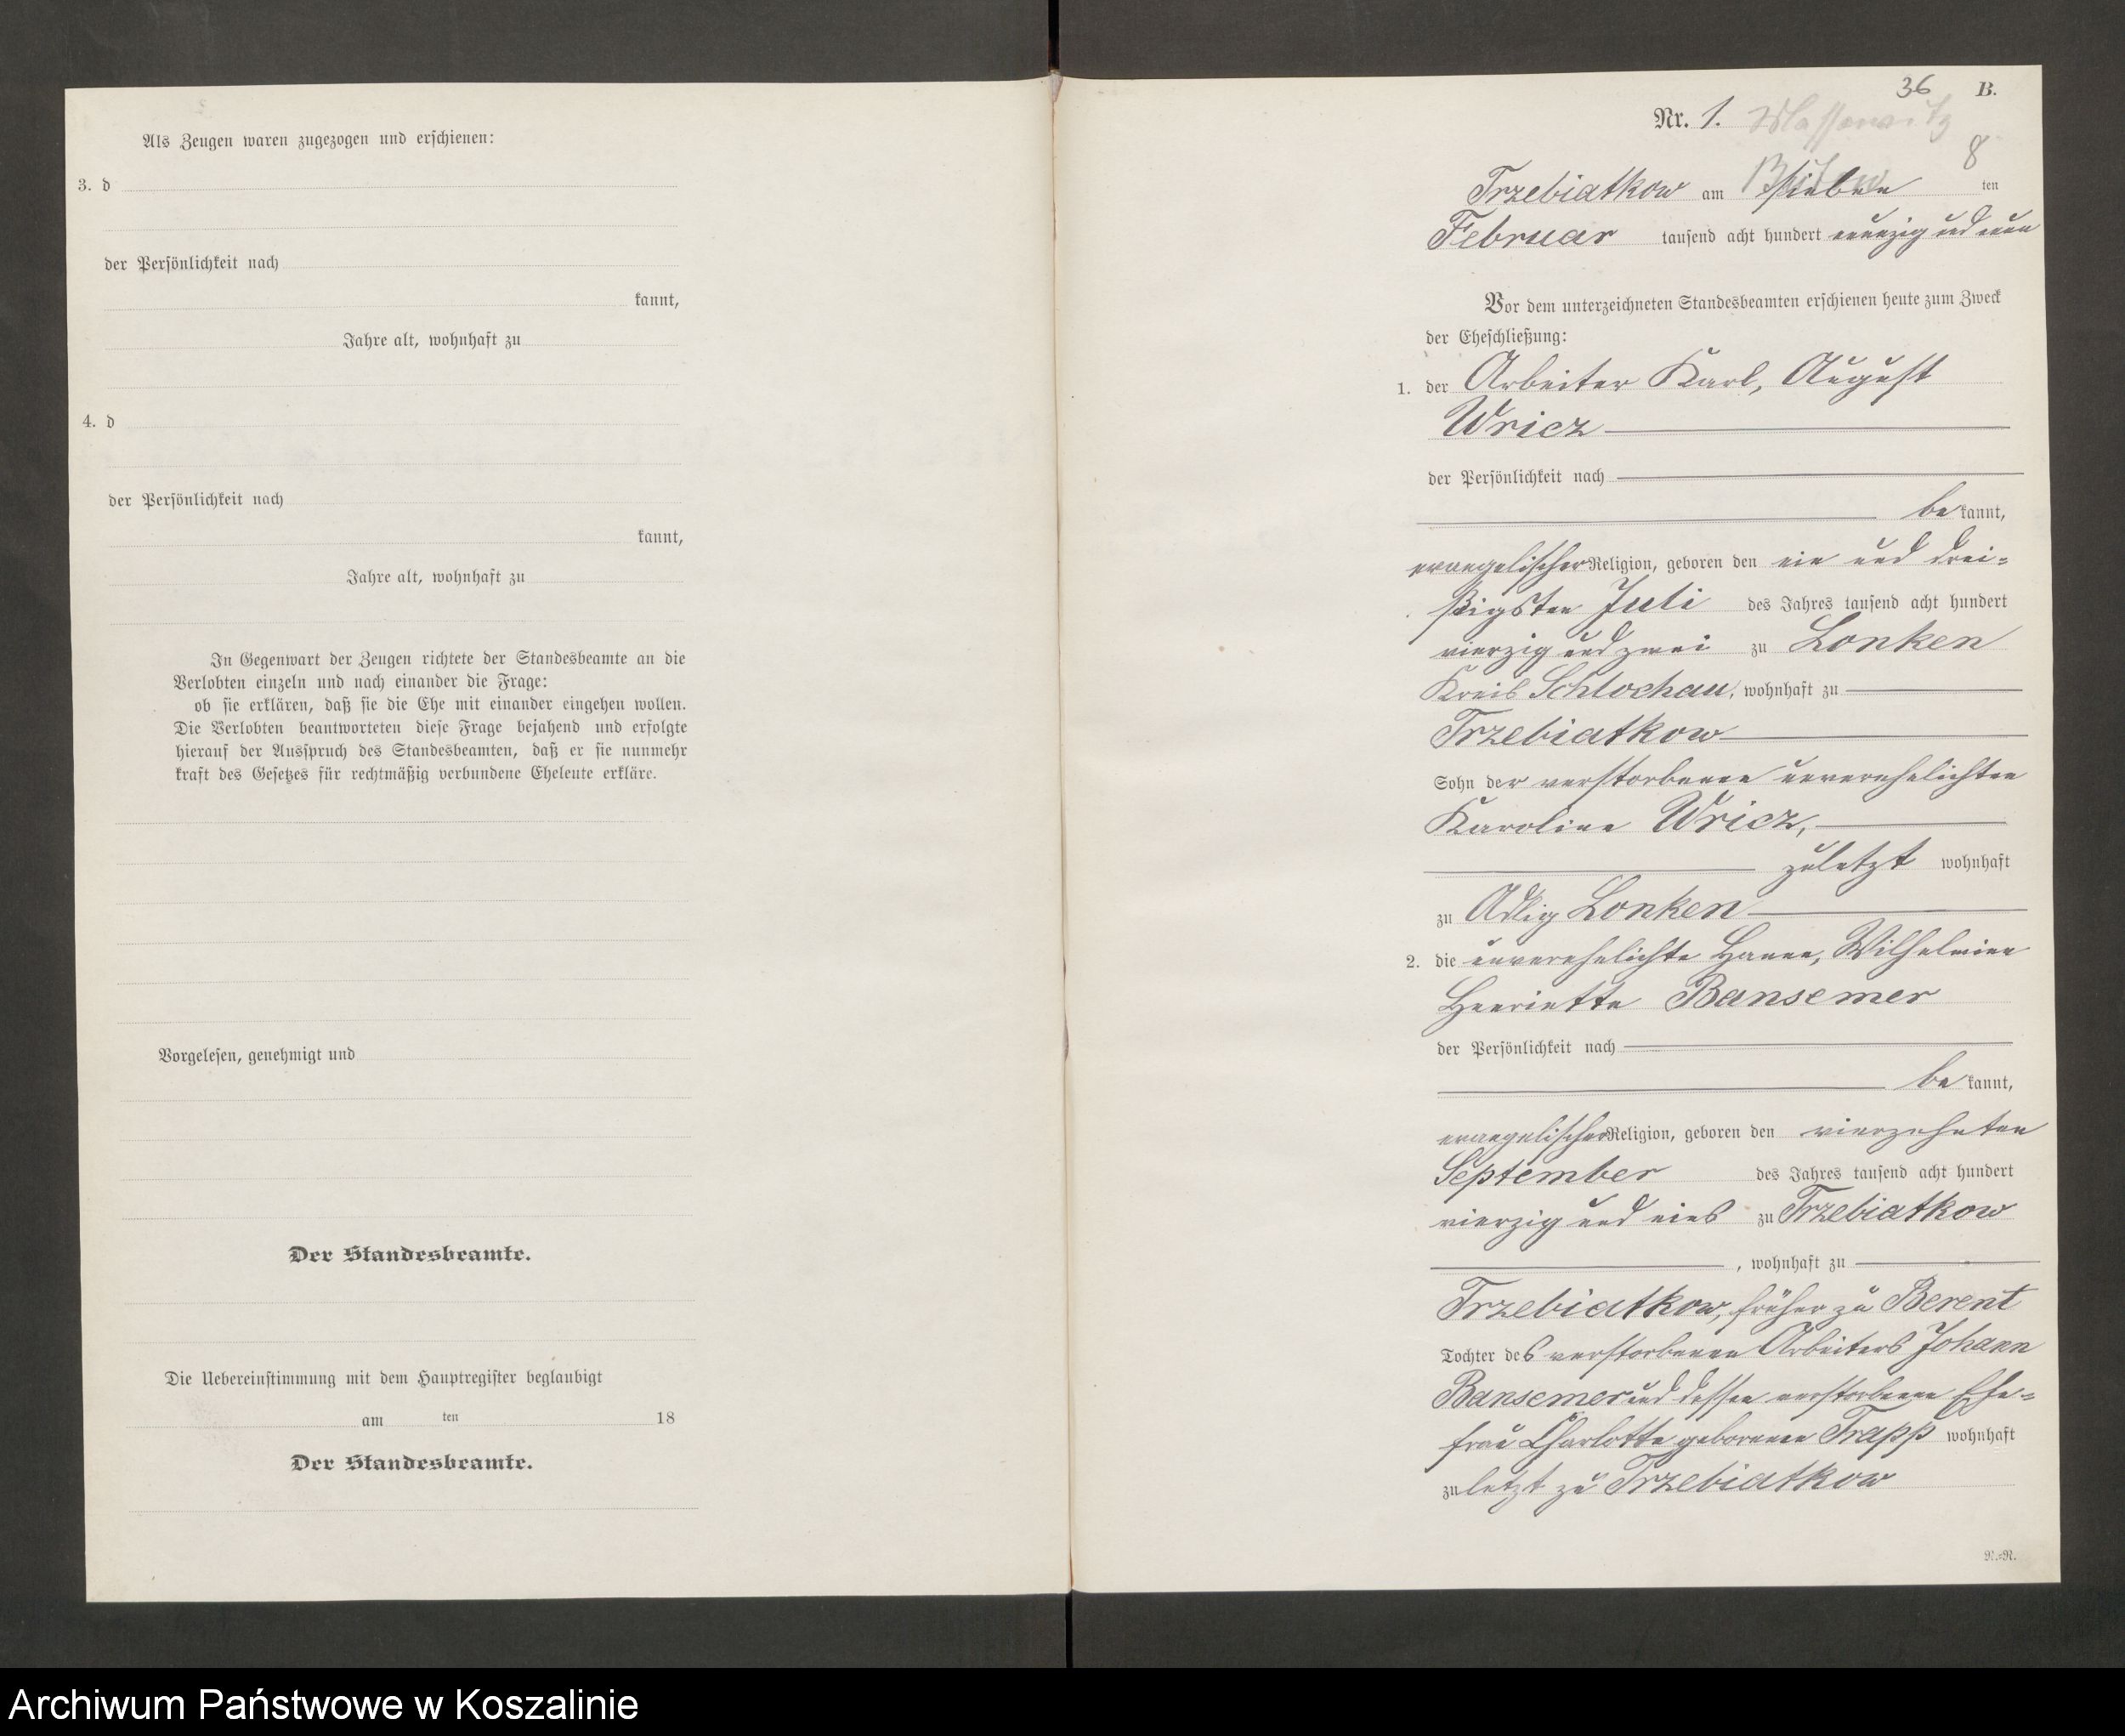 Als Zeugen waren zugezogen und erschienen:
3. d
der Persönlichkeit nach
kannt,
Jahre alt, wohnhaft zu
4. d
der Persönlichkeit nach
kannt,
Jahre alt, wohnhaft zu
In Gegenwart der Zeugen richtete der Standesbeamte an die
Verlobten einzeln und nach einander die Frage:
ob sie erklären, daß sie die Ehe mit einander eingehen wollen.
Die Verlobten beantworteten diese Frage bejahend und erfolgte
hierauf der Ausspruch des Standesbeamten, daß er sie nunmehr
kraft des Gesetzes für rechtmäßig verbundene Eheleute erkläre.
Vorgelesen, genehmigt und
Der Standesbeamte.
Die Uebereinstimmung mit dem Hauptregister beglaubigt
am ten 18
Der Standesbeamte.
36 B.
Nr. 1.
8
Trzebiatkow am sieben ten
Februar tausend acht hundert neunzig und neun
Vor dem unterzeichneten Standesbeamten erschienen heute zum Zweck
der Eheschließung:
1. der Arbeiter Karl, August
Wricz
der Persönlichkeit nach
be kannt,
evangelischer Religion, geboren den ein und drei-
ßigsten Juli des Jahres tausend acht hundert
vierzig und zwei zu Lonken
Kreis Schlochau, wohnhaft zu
Trzebiatkow
Sohn der verstorbenen unverehelichten
Karoline Wricz,
zuletzt wohnhaft
zu Adlig Lonken
2. die unverehelichte Hanne, Wilhelmine
Henriette Bansemer
der Persönlichkeit nach
be kannt,
evangelischer Religion, geboren den vierzehnten
September des Jahres tausend acht hundert
vierzig und eins zu Trzebiatkow
, wohnhaft zu
Trzebiatkow, früher zu Berent
Tochter des verstorbenen Arbeiters Johann
Bansemer und dessen verstorbenen Ehe-
frau Charlotte geborenen Trapp wohnhaft
zuletzt zu Trzebiatkow
N.=N.
Archiwum Państwowe w Koszalinie